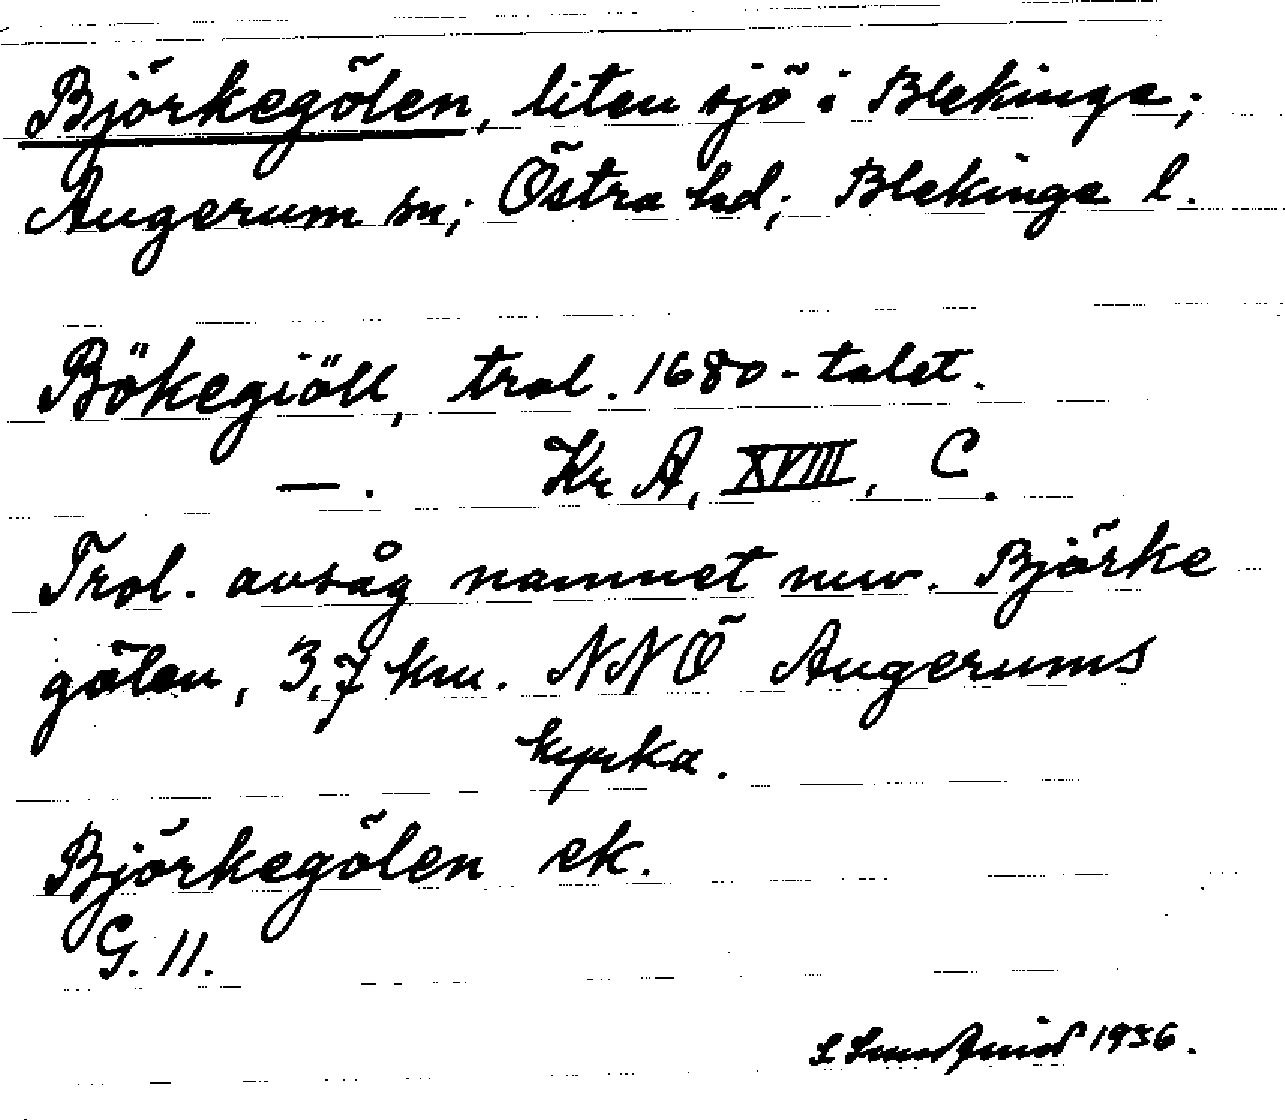 Björkegölen, liten sjö i Blekinge;
Augerum sn; Östra hd; Blekinge l.
Bökegiöll, trol. 1680-talet.
—. Kr A, XVIII, C.
Trol. avsåg namnet nuv. Björke
gölen, 3,7 km. NNÖ Augerums
kyrka.
Björkegölen ek.
G. 11.
1936.